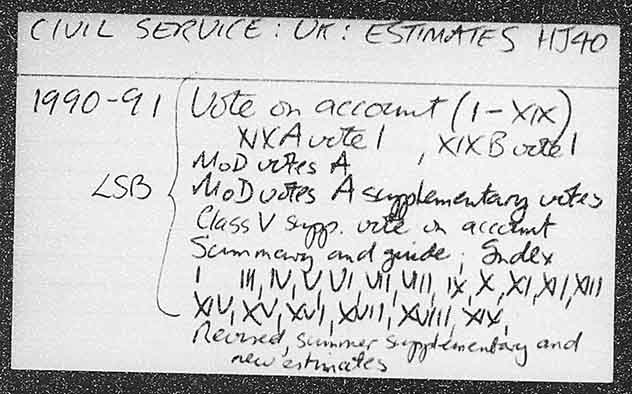 CIVIL SERVICE: UK: ESTIMATES HJ40
1990-91 Vote on account (1-XIX)
XIXA vote 1, XIXB vote 1
MoD votes A
LSB MoD votes A supplementary votes
Class V supp. vote on account
Summary and guide; Index
I III, IV, V VI, VII, VIII, IX, X, XI, XII, XIII
XIV, XV, XVI, XVII, XVIII, XIX,
Revised, summer supplementary and
new estimates